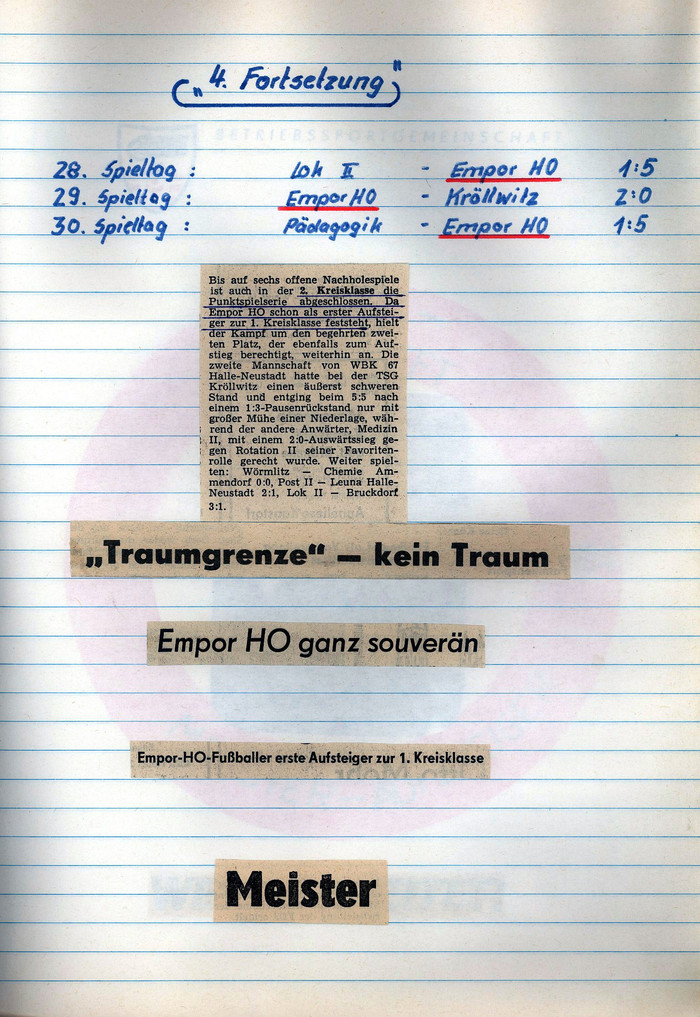 („4. Fortsetzung")
28. Spieltag : Lok II - Empor HO 1:5
29. Spieltag : Empor HO - Kröllwitz 2:0
30. Spieltag : Pädagogik - Empor HO 1:5
Bis auf sechs offene Nachholespiele
ist auch in der 2. Kreisklasse die
Punktspielserie abgeschlossen. Da
Empor HO schon als erster Aufstei-
ger zur 1. Kreisklasse feststeht, hielt
der Kampf um den begehrten zwei-
ten Platz, der ebenfalls zum Auf-
stieg berechtigt, weiterhin an. Die
zweite Mannschaft von WBK 67
Halle-Neustadt hatte bei der TSG
Kröllwitz einen äußerst schweren
Stand und entging beim 5:5 nach
einem 1:3-Pausenrückstand nur mit
großer Mühe einer Niederlage, wäh-
rend der andere Anwärter, Medizin
II, mit einem 2:0-Auswärtssieg ge-
gen Rotation II seiner Favoriten-
rolle gerecht wurde. Weiter spiel-
ten: Wörmlitz — Chemie Am-
mendorf 0:0, Post II — Leuna Halle-
Neustadt 2:1, Lok II — Bruckdorf
3:1.
„Traumgrenze“ — kein Traum
Empor HO ganz souverän
Empor-HO-Fußballer erste Aufsteiger zur 1. Kreisklasse
Meister